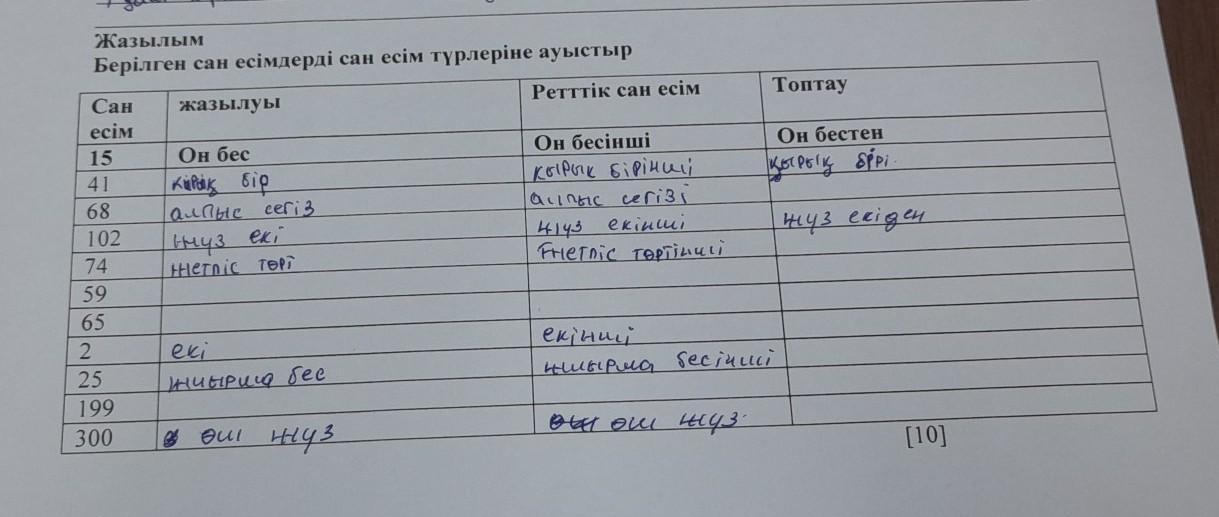 Жазылым
Берілген сан есімдерді сан есім түрлеріне ауыстыр
Сан есім жазылуы Ретттік сан есім Топтау
15 Он бес Он бесінші Он бестен
41 бір қырық бірінші қырық бірі.
68 алпыс сегіз алпыс сегізі
102 жүз екі жүз екінші жүз екіден
74 жетпіс төрт жетпіс төртінші
59
65
2 екі екінші
25 жиырма бес жиырма бесінші
199
300 өш жүз өш жүз.
[10]